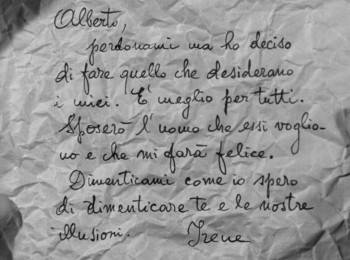 Alberto,
perdonami ma ho deciso
di fare quello che desiderano
i miei. E' meglio per tutti.
Sposerò l'uomo che essi voglio-
no e che mi farà felice.
Dimenticami come io spero
di dimenticare te e le nostre
illusioni. Irene